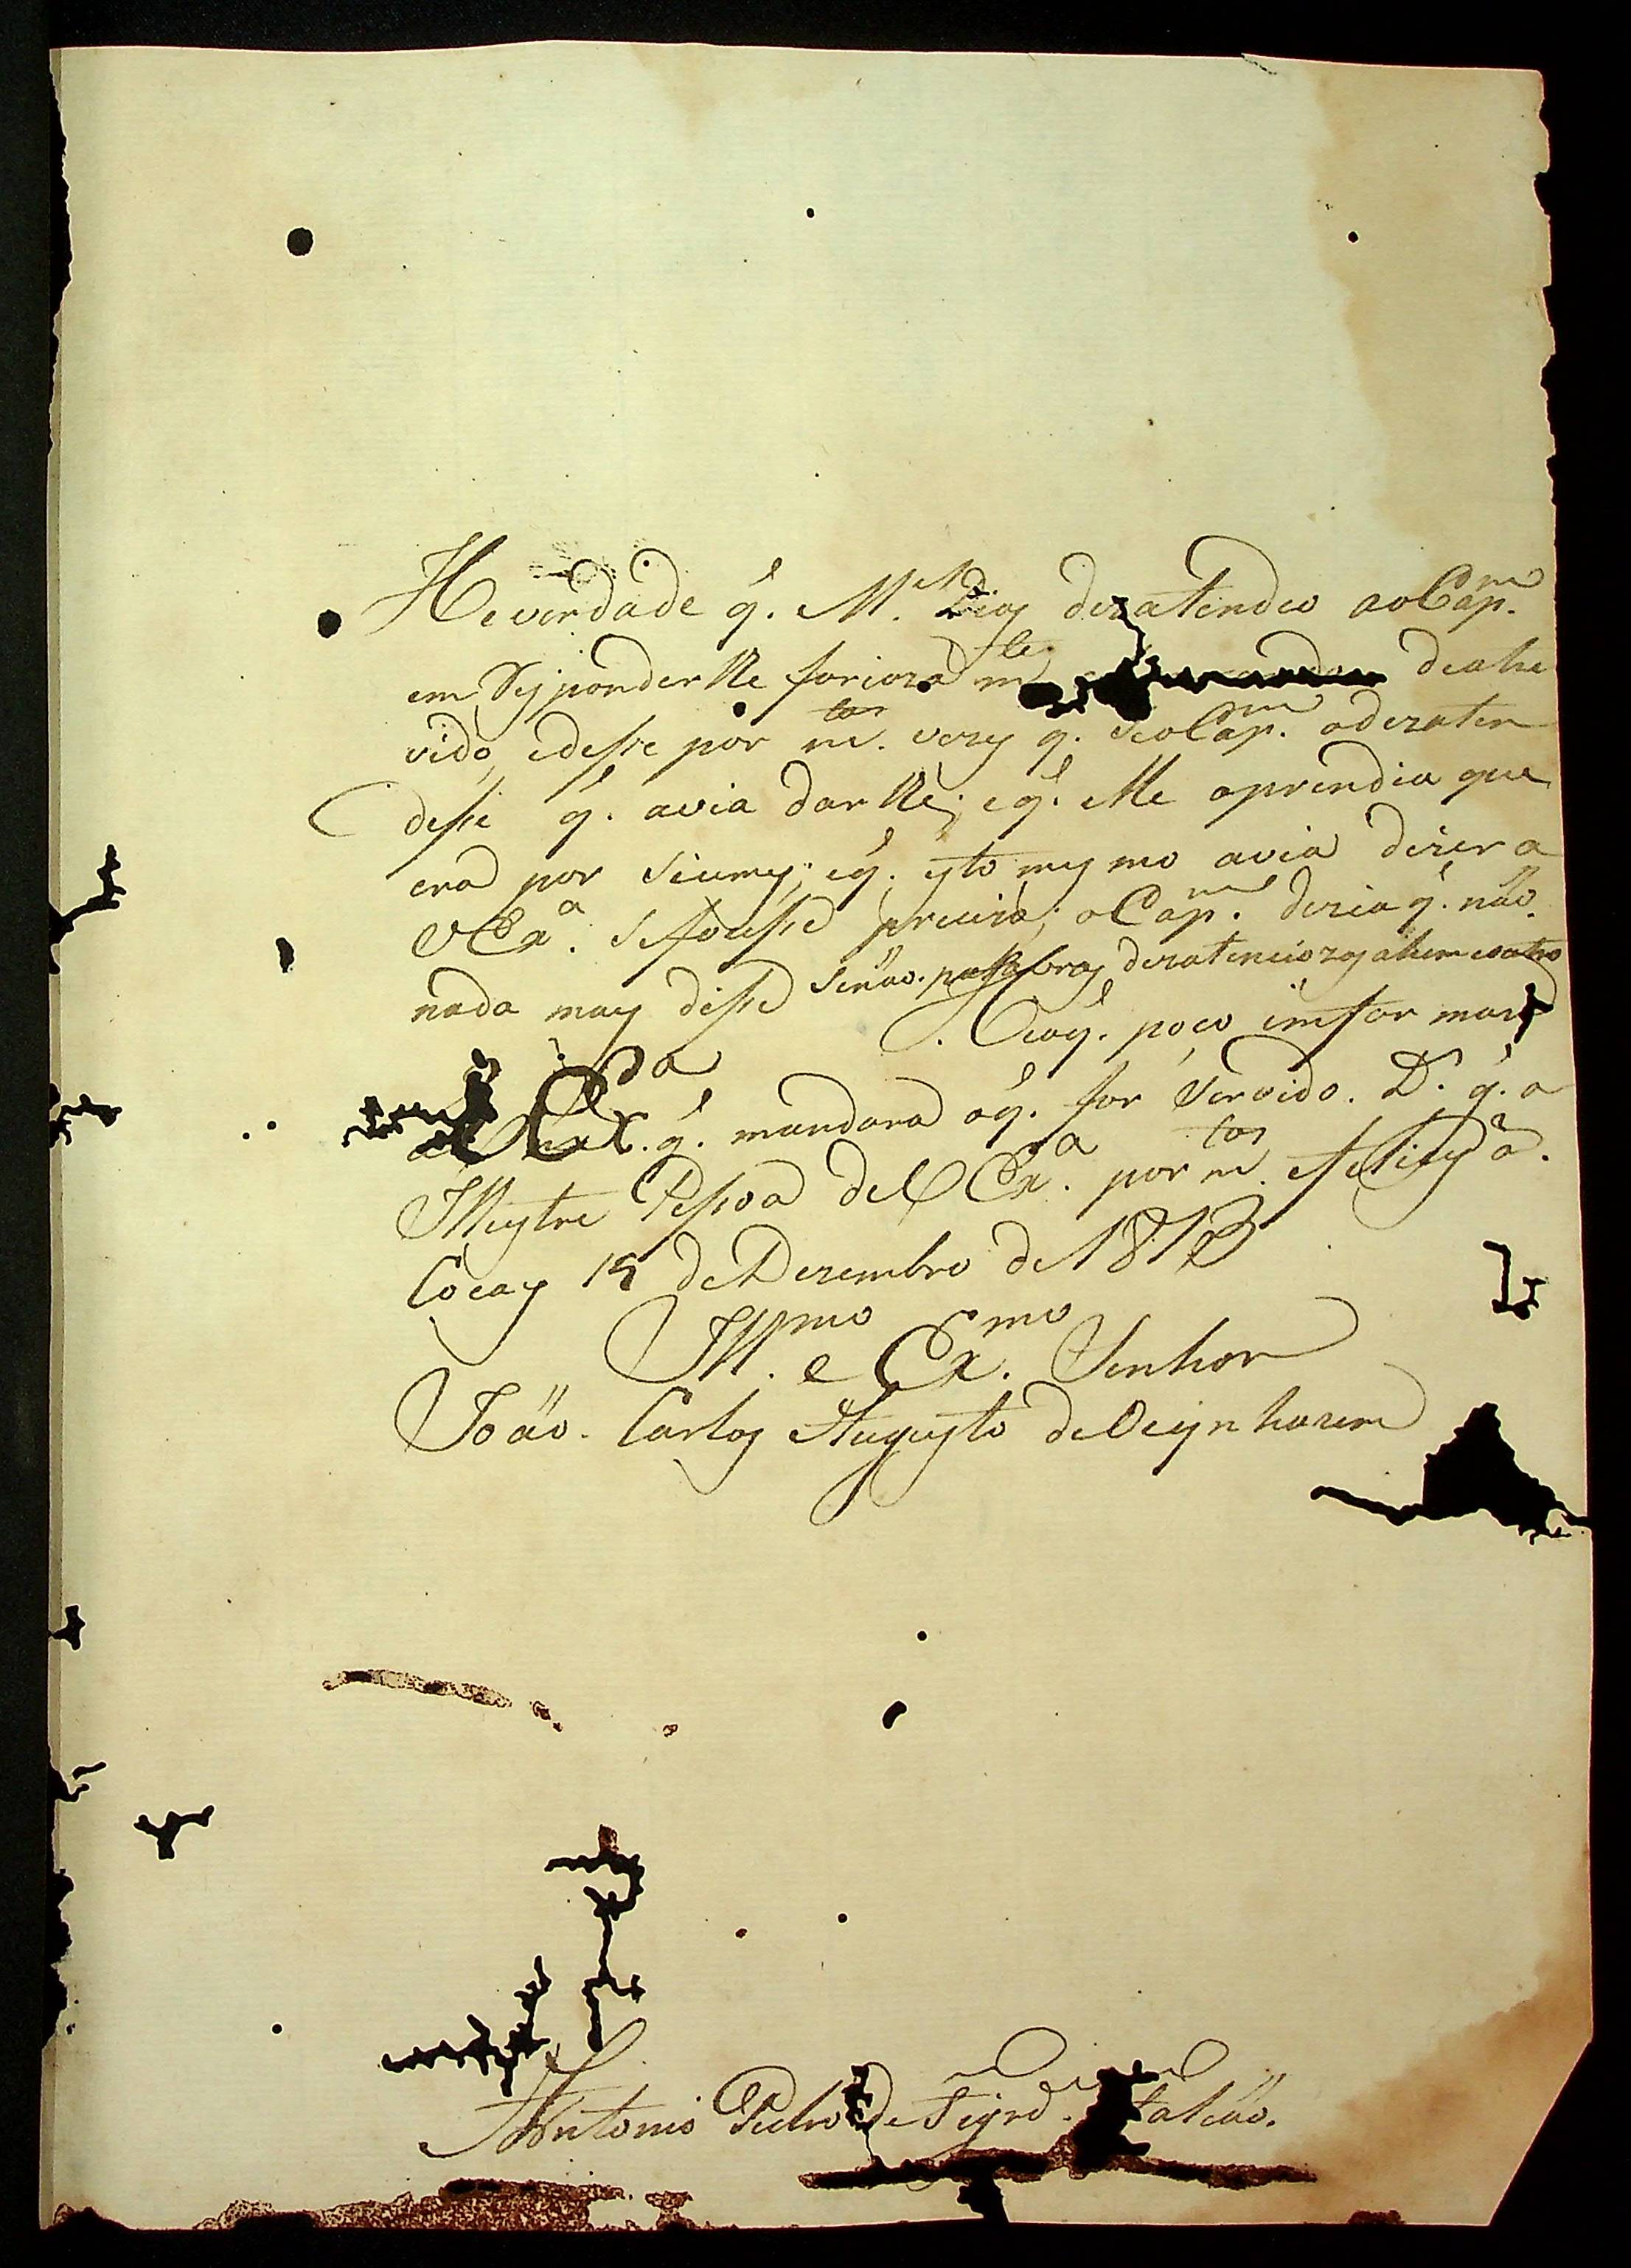 He verdade q̃. M.el Dias dezatendeo ao Cap.m
em Responderlhe foriozam.te deatre
vido, edisse por m.tas vezes q̃. seo Cap.m odezaten
desse q̃. avia darlhe; eq̃. Elle oprendia que
era por siumes; eq̃. isto mesmo avia dizer a
VEx.a sefousse precizo; oCap.m dezia q̃. não.
nada mais disse senão. palabras dezatenciozas ahum eoutro
. He oq̃. poço imformar
a V Ex.a q̃. mandara oq̃. for servido. D.s g.e a
Illustre Pessoa deV Ex.a por m. tos e felices a.
Cocaes 15 deDezembro de 1813
Ill.mo e Ex.mo Senhor
João. Carlos Augusto deOeynhazem
Antonio Pedro de Figrd.o Falcão.